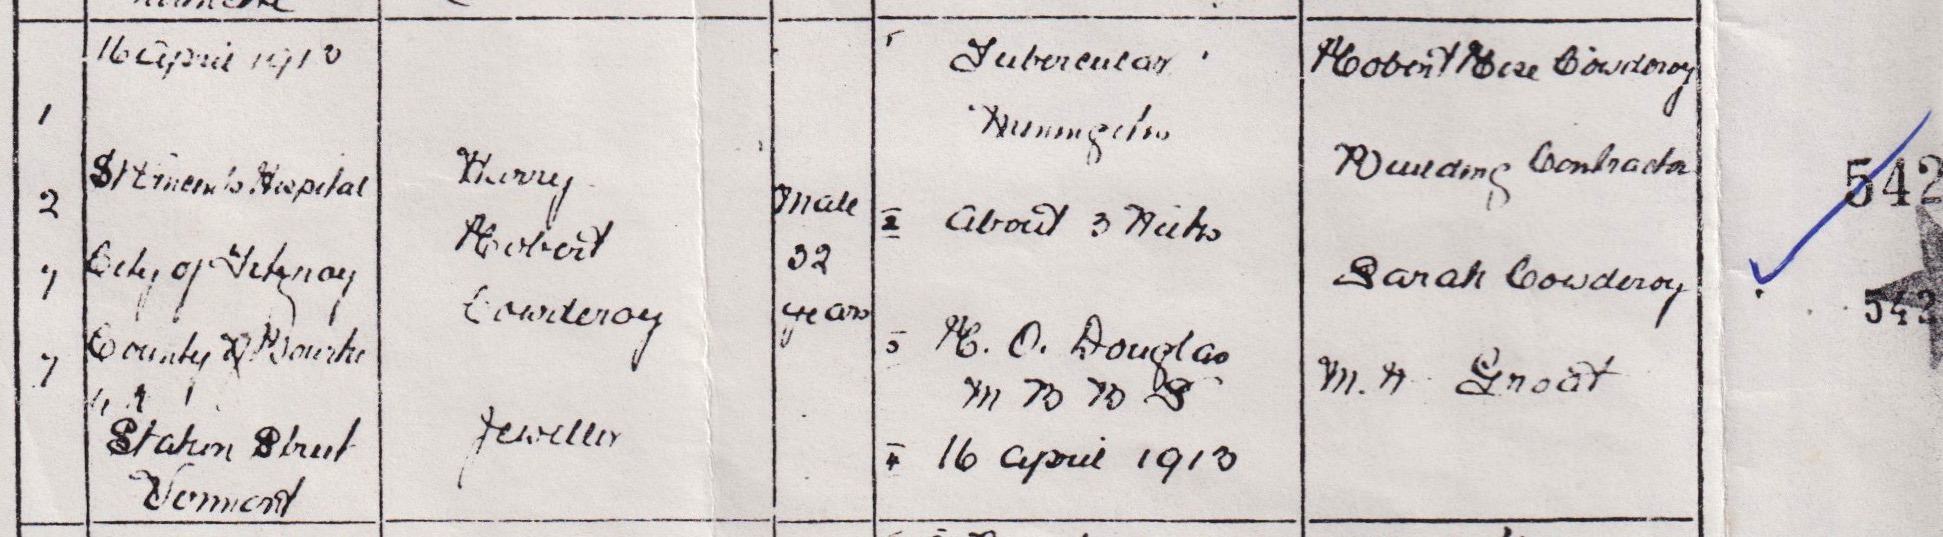 1
2
7
7
16 April 1913
St Vincents Hospital
City of Fitzroy
County of Bourke
Station Street
Vermont
Harry
Robert
Cowderoy
Jeweller
Male
32
years
1 Tubercular
Meningitis
2 About 3 Weeks
3 H. O. Douglas
M B B S
4 16 April 1913
Robert Cowderoy
Building Contractor
Sarah Cowderoy
M. A. Groat
542
542